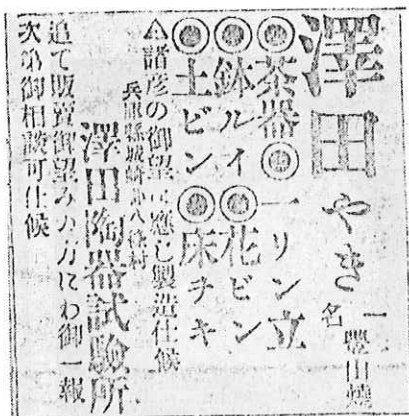 澤田やき
一名 豐山燒
◉茶器◉一リン立
◉鉢ルイ◉花ビン
◉土ビン◉床チキ
諸彦の御望に應じ製造仕候
兵庫縣城崎郡八條村
澤田陶器試驗所
追て販賣御望みの方にわ御一報
次第御相談可仕候